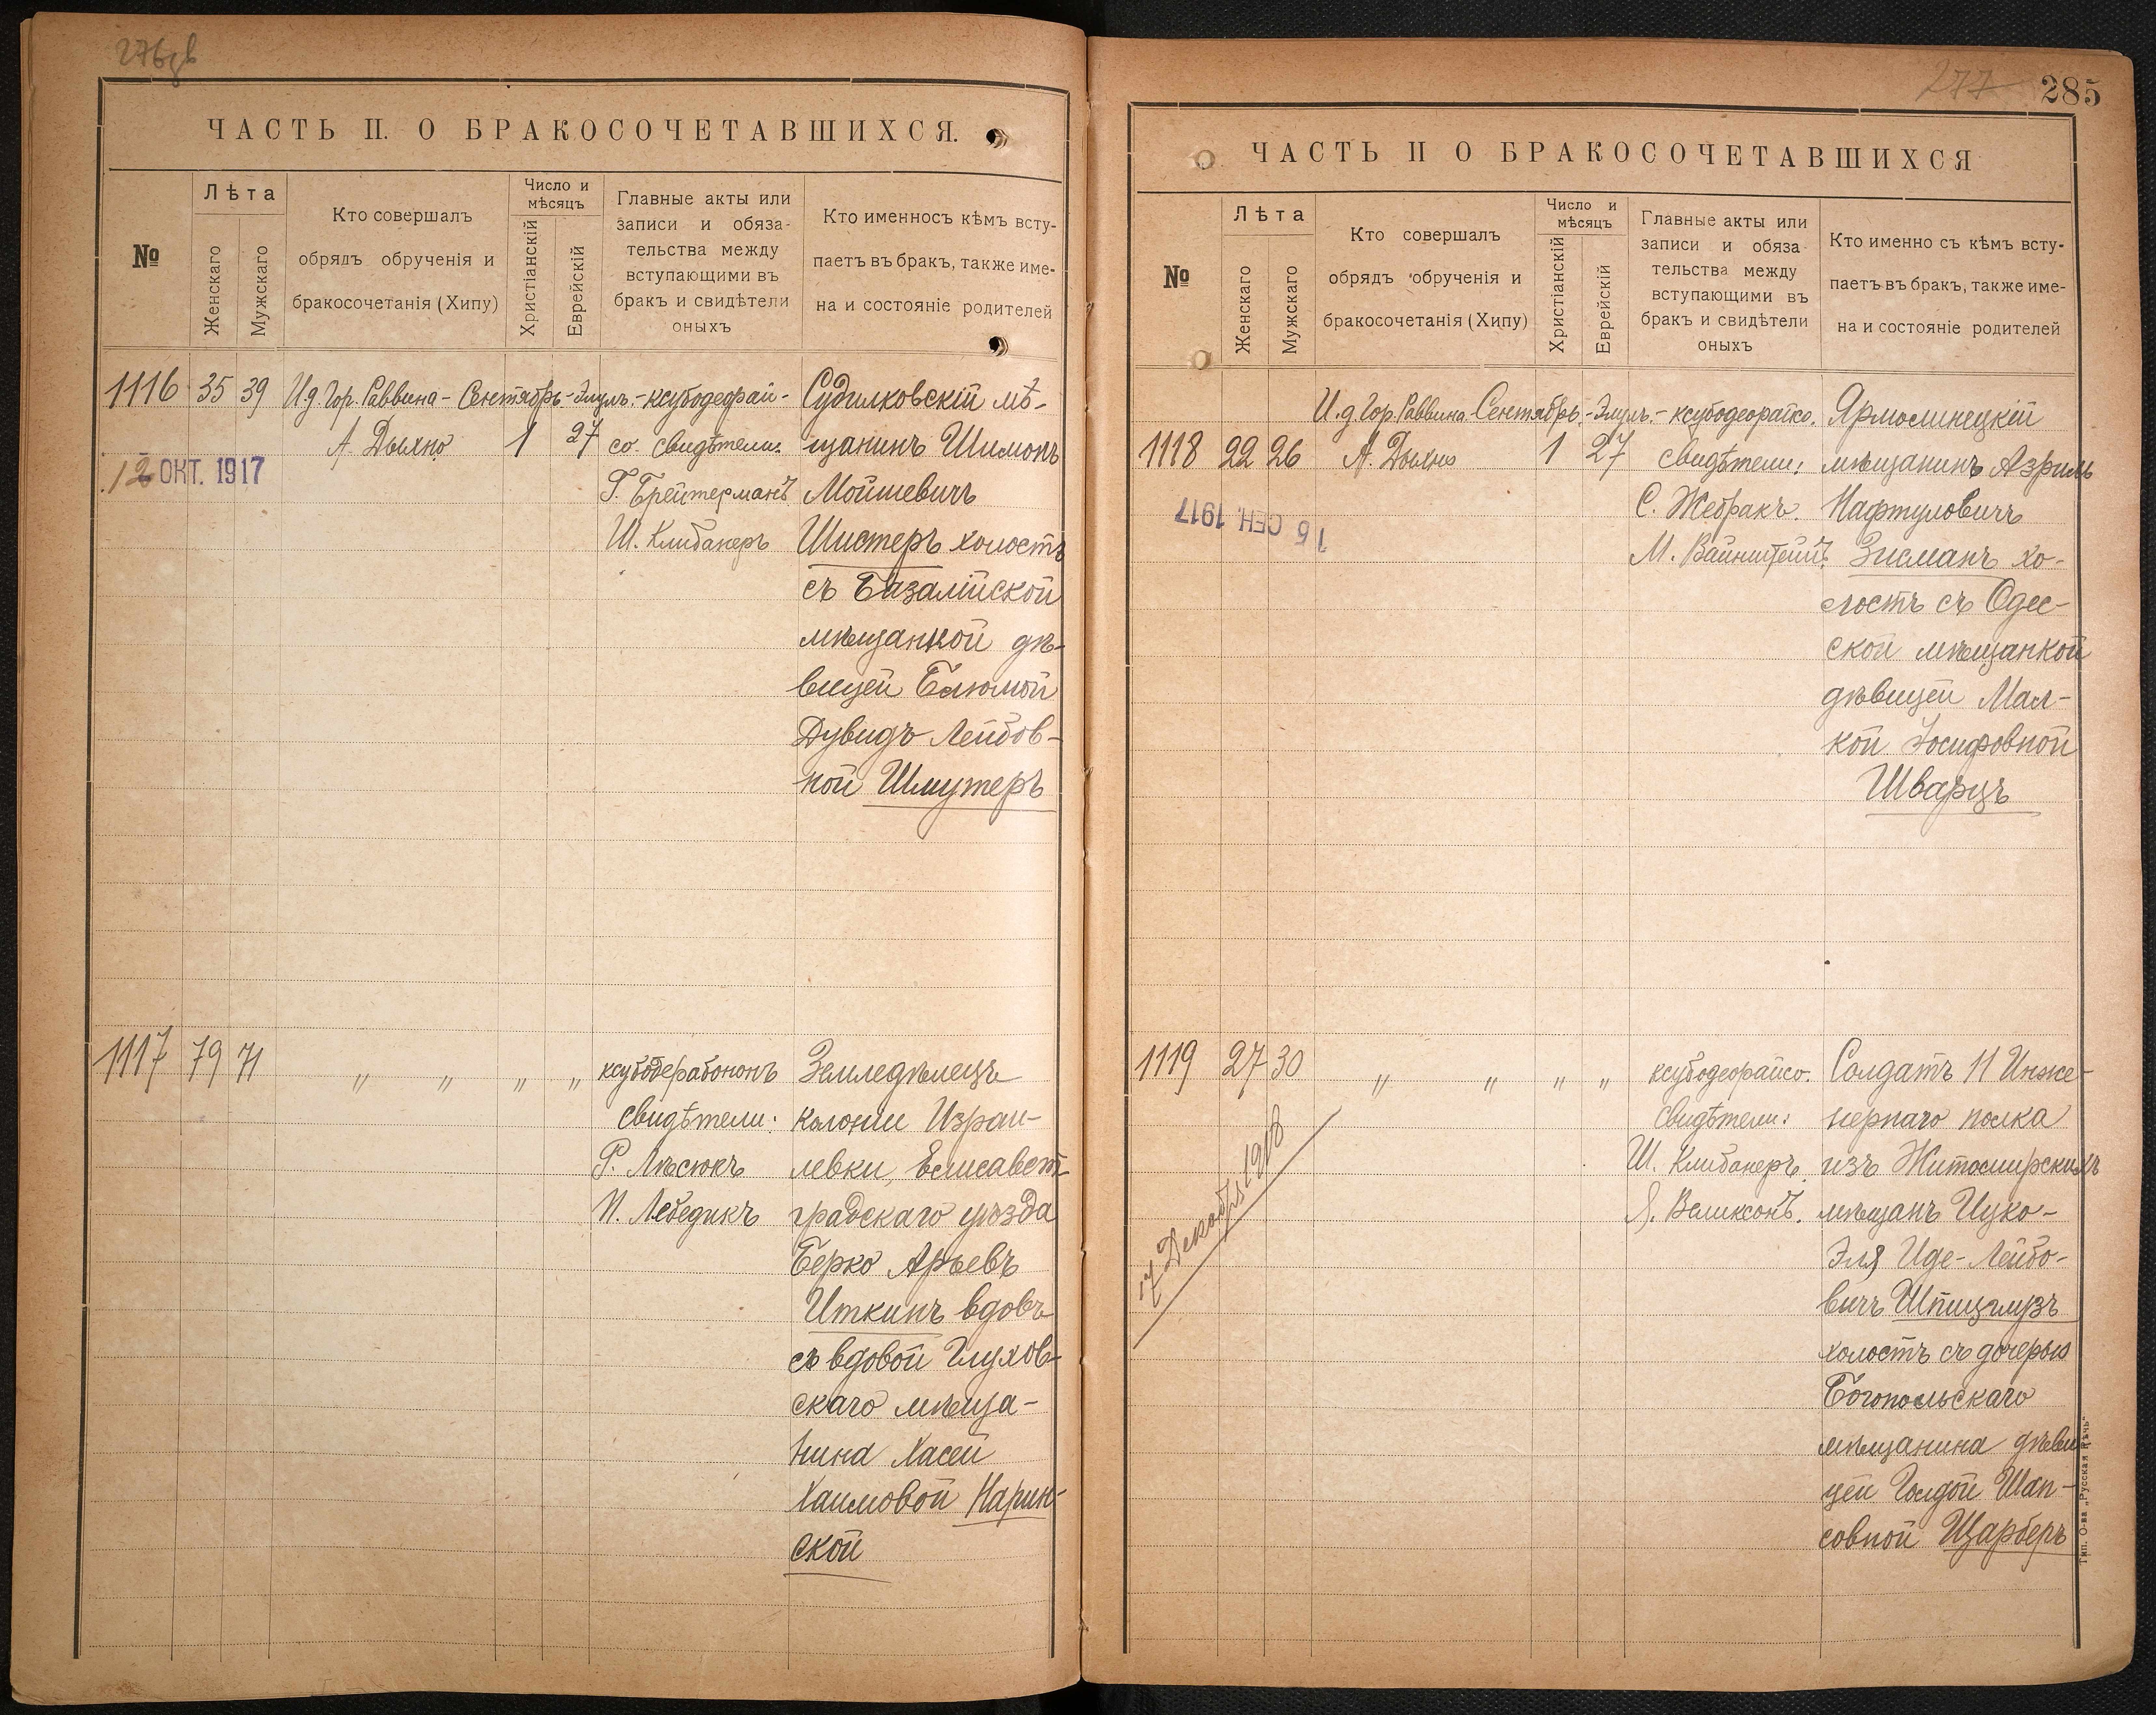 276
ЧАСТЬ II. О БРАКОСОЧЕТАВШИХСЯ.
№
Лѣта
Женскаго
Мужскаго
Кто совершалъ
обрядъ обрученія и
бракосочетанія (Хипу)
Число и
мѣсяцъ
Христіанскій
Еврейскій
Главные акты или
записи и обяза-
тельства между
вступающими въ
бракъ и свидѣтели
оныхъ
Кто именносъ кѣмъ всту-
паетъ въ бракъ, также име-
на и состояніе родителей
1116 35 39 И.д. Гор. Раввина - Сентябрь - Элулъ. - ксубодеорай-
А. Дыхно 1 27 со. свидѣтели:
12 ОКТ. 1917
Г. Брейтерманъ
Ш. Клибанеръ
Судилковскій мѣ-
щанинъ Шимонъ
Мойшевичъ
Шистеръ холостъ
съ Базалійской
мѣщанкой дѣ-
вицей Блюмой
Дувидъ-Лейбов-
ной Шмутеръ
1117 79 71 " " " " ксубодерабононъ
свидѣтели:
Р. Лѣсюкъ
И. Лебедикъ
Земледѣлецъ
колоніи Израи-
левки, Елисавет-
градскаго уѣзда
Берко Арьевъ
Иткинъ вдовъ
съ вдовой Глухов-
скаго мѣща-
нина Хасей
Хаимовой Нарин-
ской
277 285
ЧАСТЬ II О БРАКОСОЧЕТАВШИХСЯ
№
Лѣта
Женскаго
Мужскаго
Кто совершалъ
обрядъ обрученія и
бракосочетанія (Хипу)
Число и
мѣсяцъ
Христіанскій
Еврейскій
Главные акты или
записи и обяза-
тельства между
вступающими въ
бракъ и свидѣтели
оныхъ
Кто именно съ кѣмъ всту-
паетъ въ бракъ, также име-
на и состояніе родителей
И.д. Гор. Раввина. Сентябрь. - Элулъ. - ксубодеорайсо.
1118 22 26 А. Дыхно 1 27 свидѣтели:
15 СЕН. 1917
С. Жебракъ.
М. Вайнштейнъ.
Ярмолинецкій
мѣщанинъ Азриль
Нафтуловичъ
Зисманъ хо-
лостъ съ Одес-
ской мѣщанкой
дѣвицей Мал-
кой Іосифовной
Шварцъ
1119 27 30 " " " " ксубодеорайсо.
свидѣтели:
Ш. Клибанеръ.
Я. Великсонъ.
17 Декабря 1918
Солдатъ 11 Инже-
нернаго полка
изъ Житомирскихъ
мѣщанъ Ицко-
Эля Иде-Лейбо-
вичъ Шпицглузъ
холостъ съ дочерью
Богопольскаго
мѣщанина дѣви-
цей Голдой Шап-
совной Щарберъ
Тип. О-ва „Русская Рѣчь“